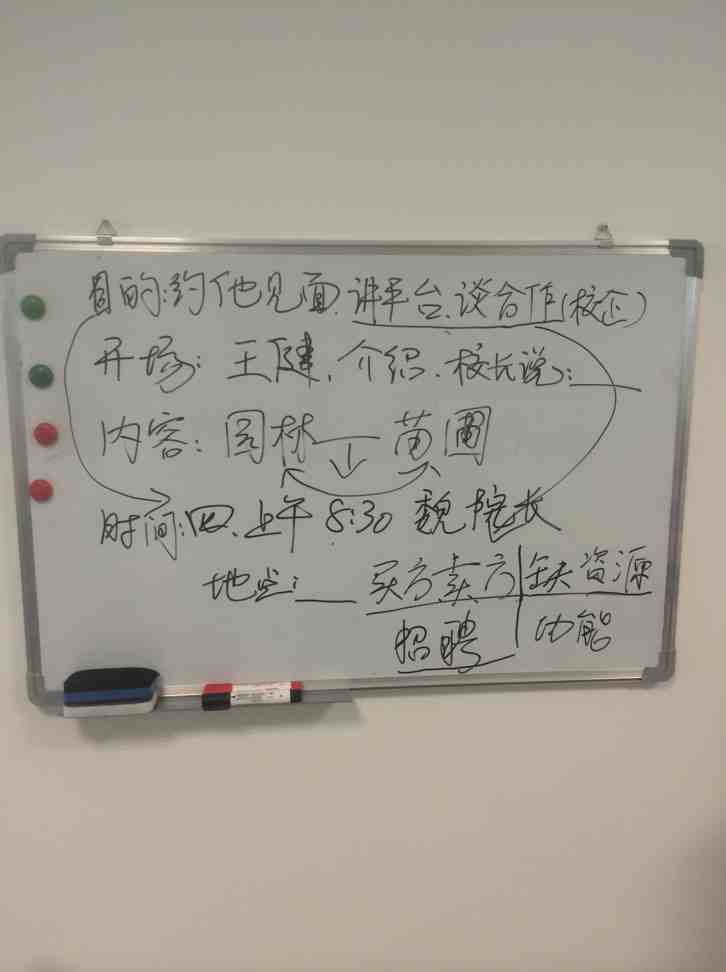 目的:约他见面、讲平台、谈合作(校企)
开场: 王健、介绍、校长说:___
内容: 园林 — 苗圃
时间:四、上午 8:30 魏院长
地点:___ 买方卖方 缺资源
招聘 功能